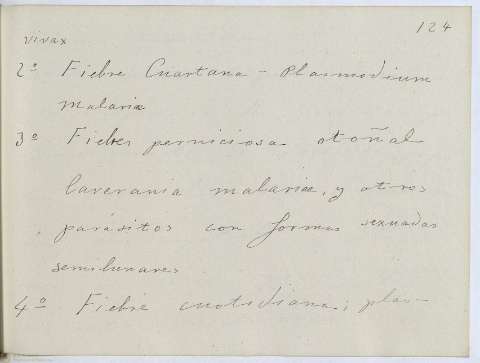 124
vivax
2º Fiebre Cuartana - Plasmodium
malariæ
3º Fiebre perniciosa otoñal
laverania malariæ, y otros
parásitos con formas sexuadas
semilunares
4º Fiebre cuotidiana; plas-